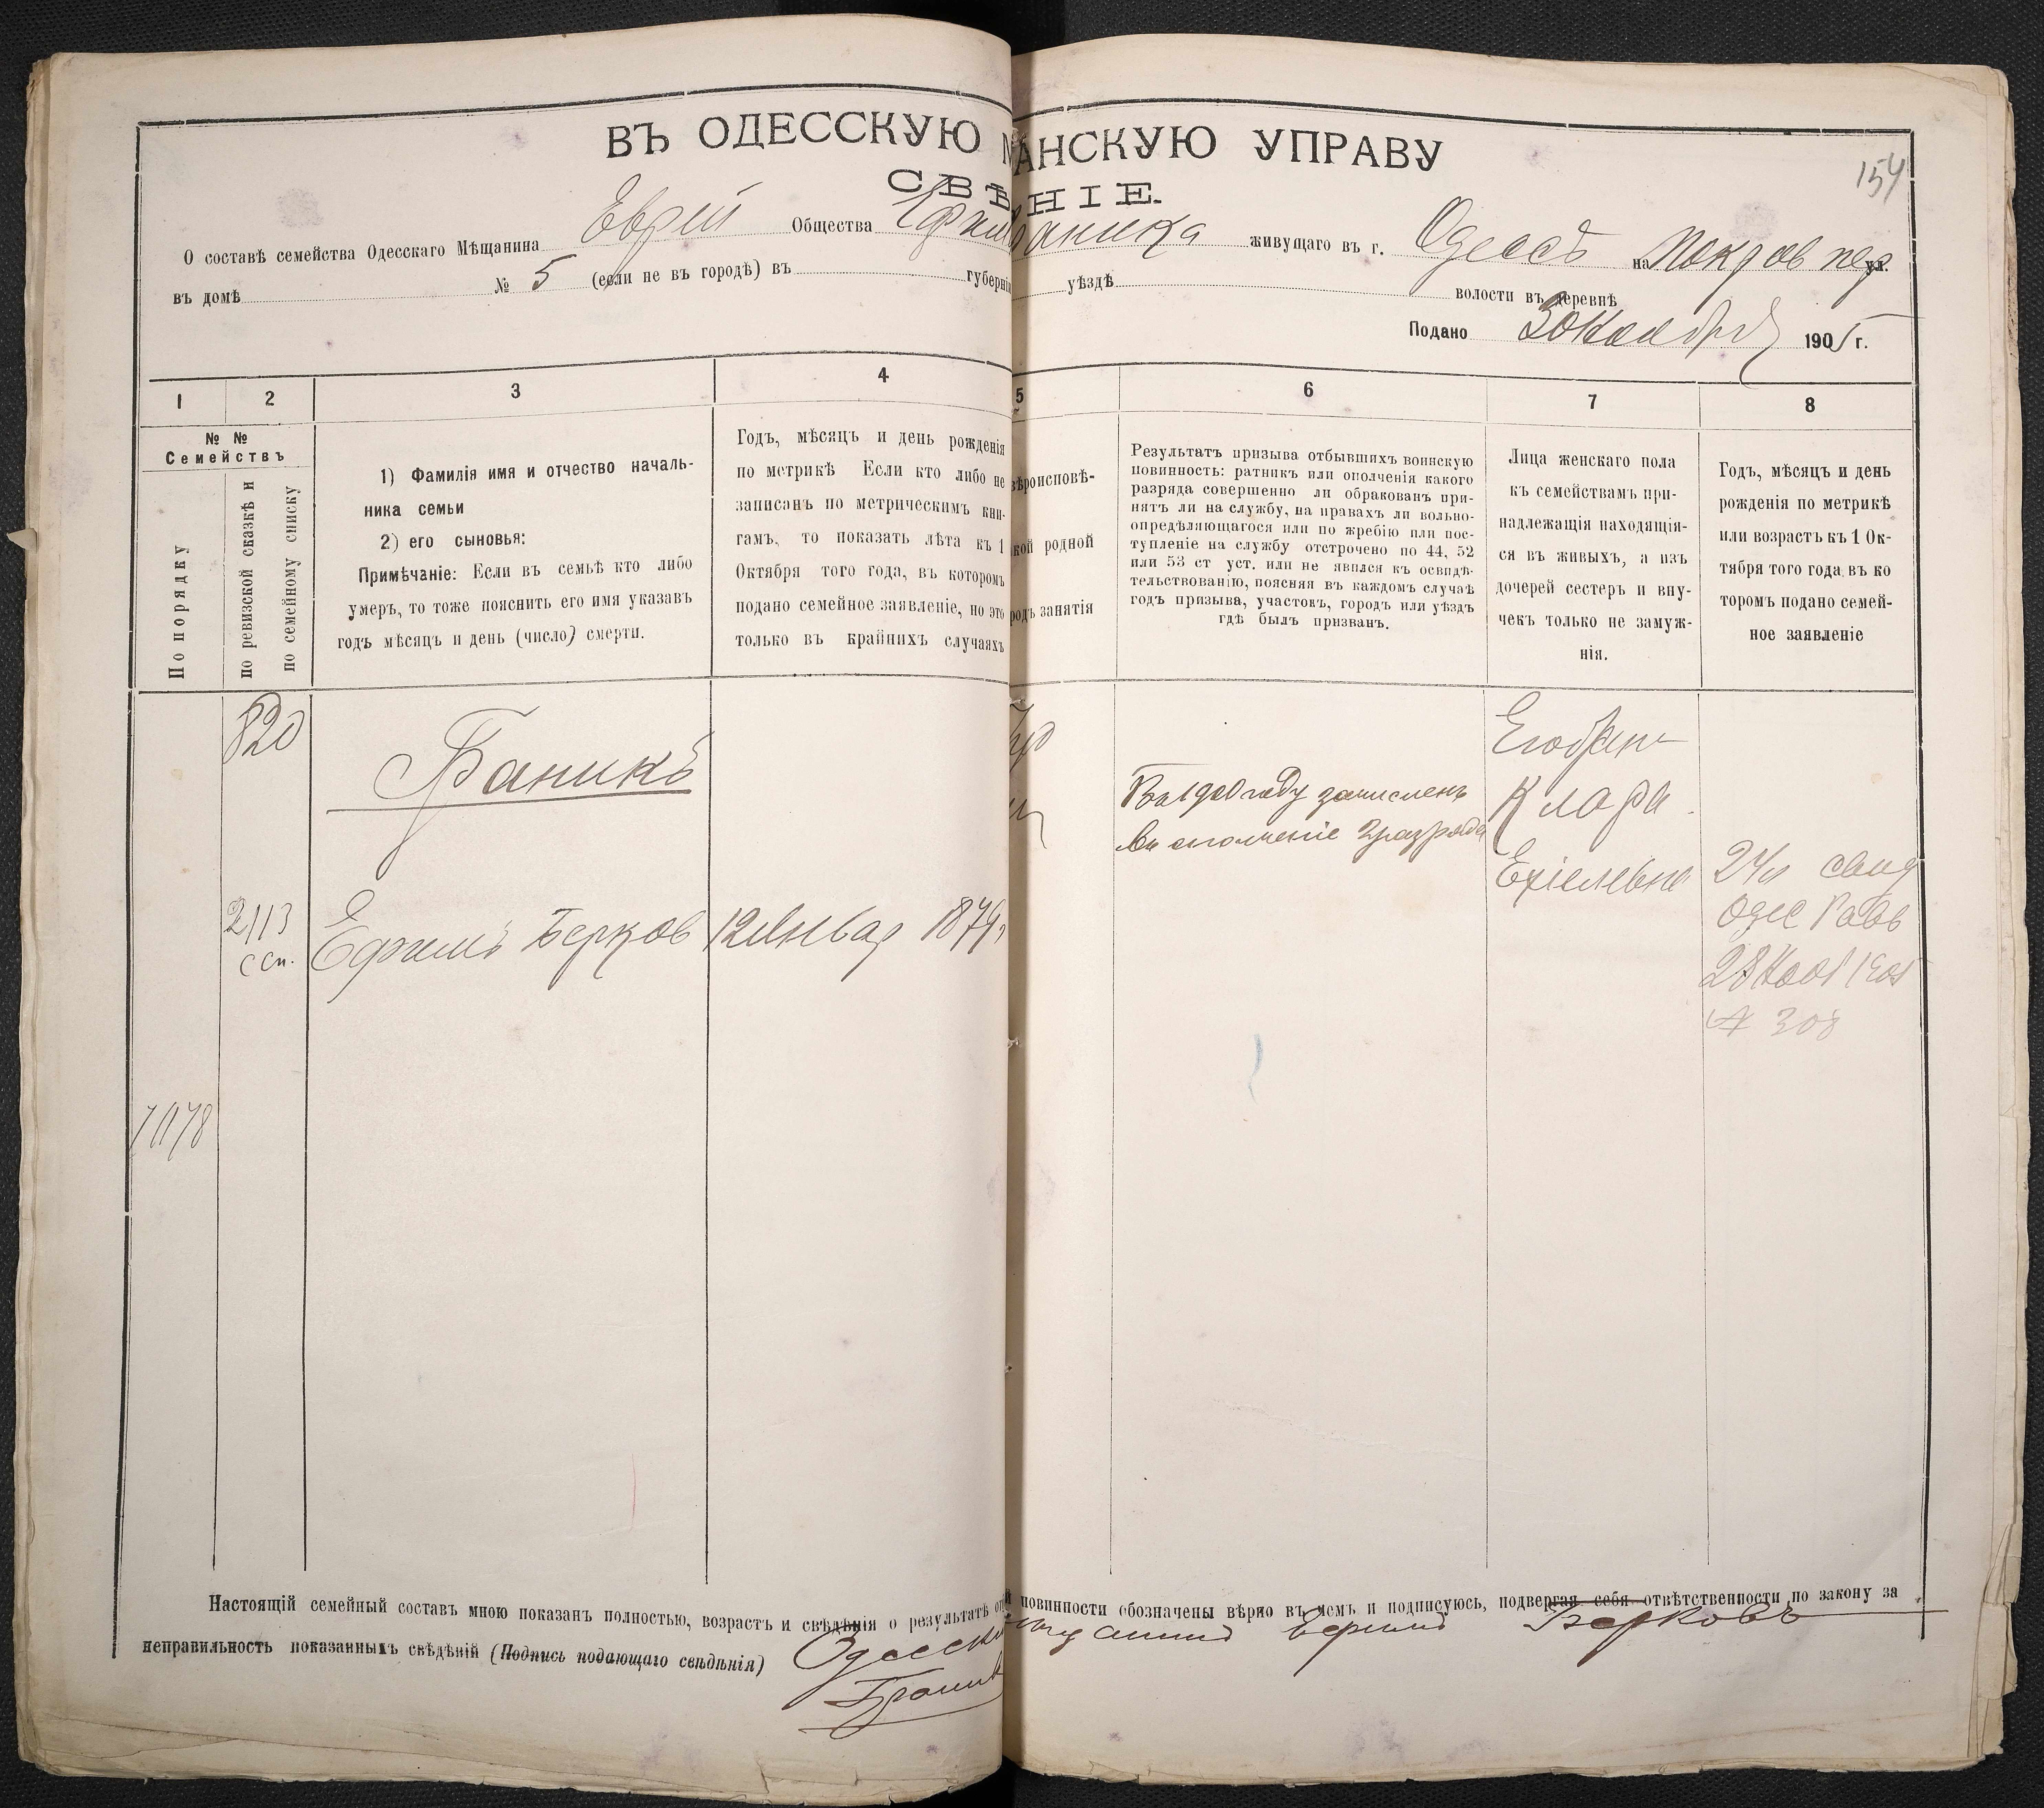 ВЪ ОДЕССКУЮ М АНСКУЮ УПРАВУ
154
СВѢ НІЕ.
О составѣ семейства Одесскаго Мѣщанина Еврей Общества Ефим Баника живущаго въ г. Одессѣ на Покров пер ул.
въ домѣ № 5 (если не въ городѣ) въ губерні уѣздѣ волости въ деревнѣ
Подано 30 Ноября 1905 г.
1 2 3 4 5 6 7 8
№ №
Семействъ
По порядку
по ревизской сказкѣ и
по семейному списку
1) Фамилія имя и отчество началь-
ника семьи
2) его сыновья:
Примѣчаніе: Если въ семьѣ кто либо
умеръ, то тоже пояснить его имя указавъ
годъ мѣсяцъ и день (число) смерти.
Годъ, мѣсяцъ и день рожденія
по метрикѣ Если кто либо не
записанъ по метрическимъ кни-
гамъ, то показать лѣта къ 1
Октября того года, въ которомъ
подано семейное заявленіе, но это
только въ крайнихъ случаяхъ
вѣроисповѣ-
кой родной
родъ занятія
Результатъ призыва отбывшихъ воинскую
повинность: ратникъ или ополченія какого
разряда совершенно ли обракованъ при-
нятъ ли на службу, на правахъ ли вольно-
опредѣляющагося или по жребію или пос-
тупленіе на службу отстрочено по 44, 52
или 53 ст уст. или не явился къ освидѣ-
тельствованію, поясняя въ каждомъ случаѣ
годъ призыва, участокъ, городъ или уѣздъ
гдѣ былъ призванъ.
Лица женскаго пола
къ семействамъ при-
надлежащія находящія-
ся въ живыхъ, а изъ
дочерей сестеръ и вну-
чекъ только не замуж-
нія.
Годъ, мѣсяцъ и день
рожденія по метрикѣ
или возрастъ къ 1 Ок-
тября того года въ ко
торомъ подано семей-
ное заявленіе
820
Баникъ
2113
с сп.
Ефимъ Берков
12 Январ 1879 г
7178
Въ 1900 году зачисленъ
въ ополченіе 2 разряда
Его жен
Клара
Ехіелевна
24 л свид
Одес Равв
28 Нояб 1905
№ 308
Настоящій семейный составъ мною показанъ полностью, возрастъ и свѣдѣнія о результатѣ от й повинности обозначены вѣрно въ чемъ и подписуюсь, подвергая себя отвѣтственности по закону за
неправильность показанныхъ свѣдѣній (Подпись подающаго свѣдѣнія) Одесскі мѣщанинъ Ефимъ Берковъ
Баникъ